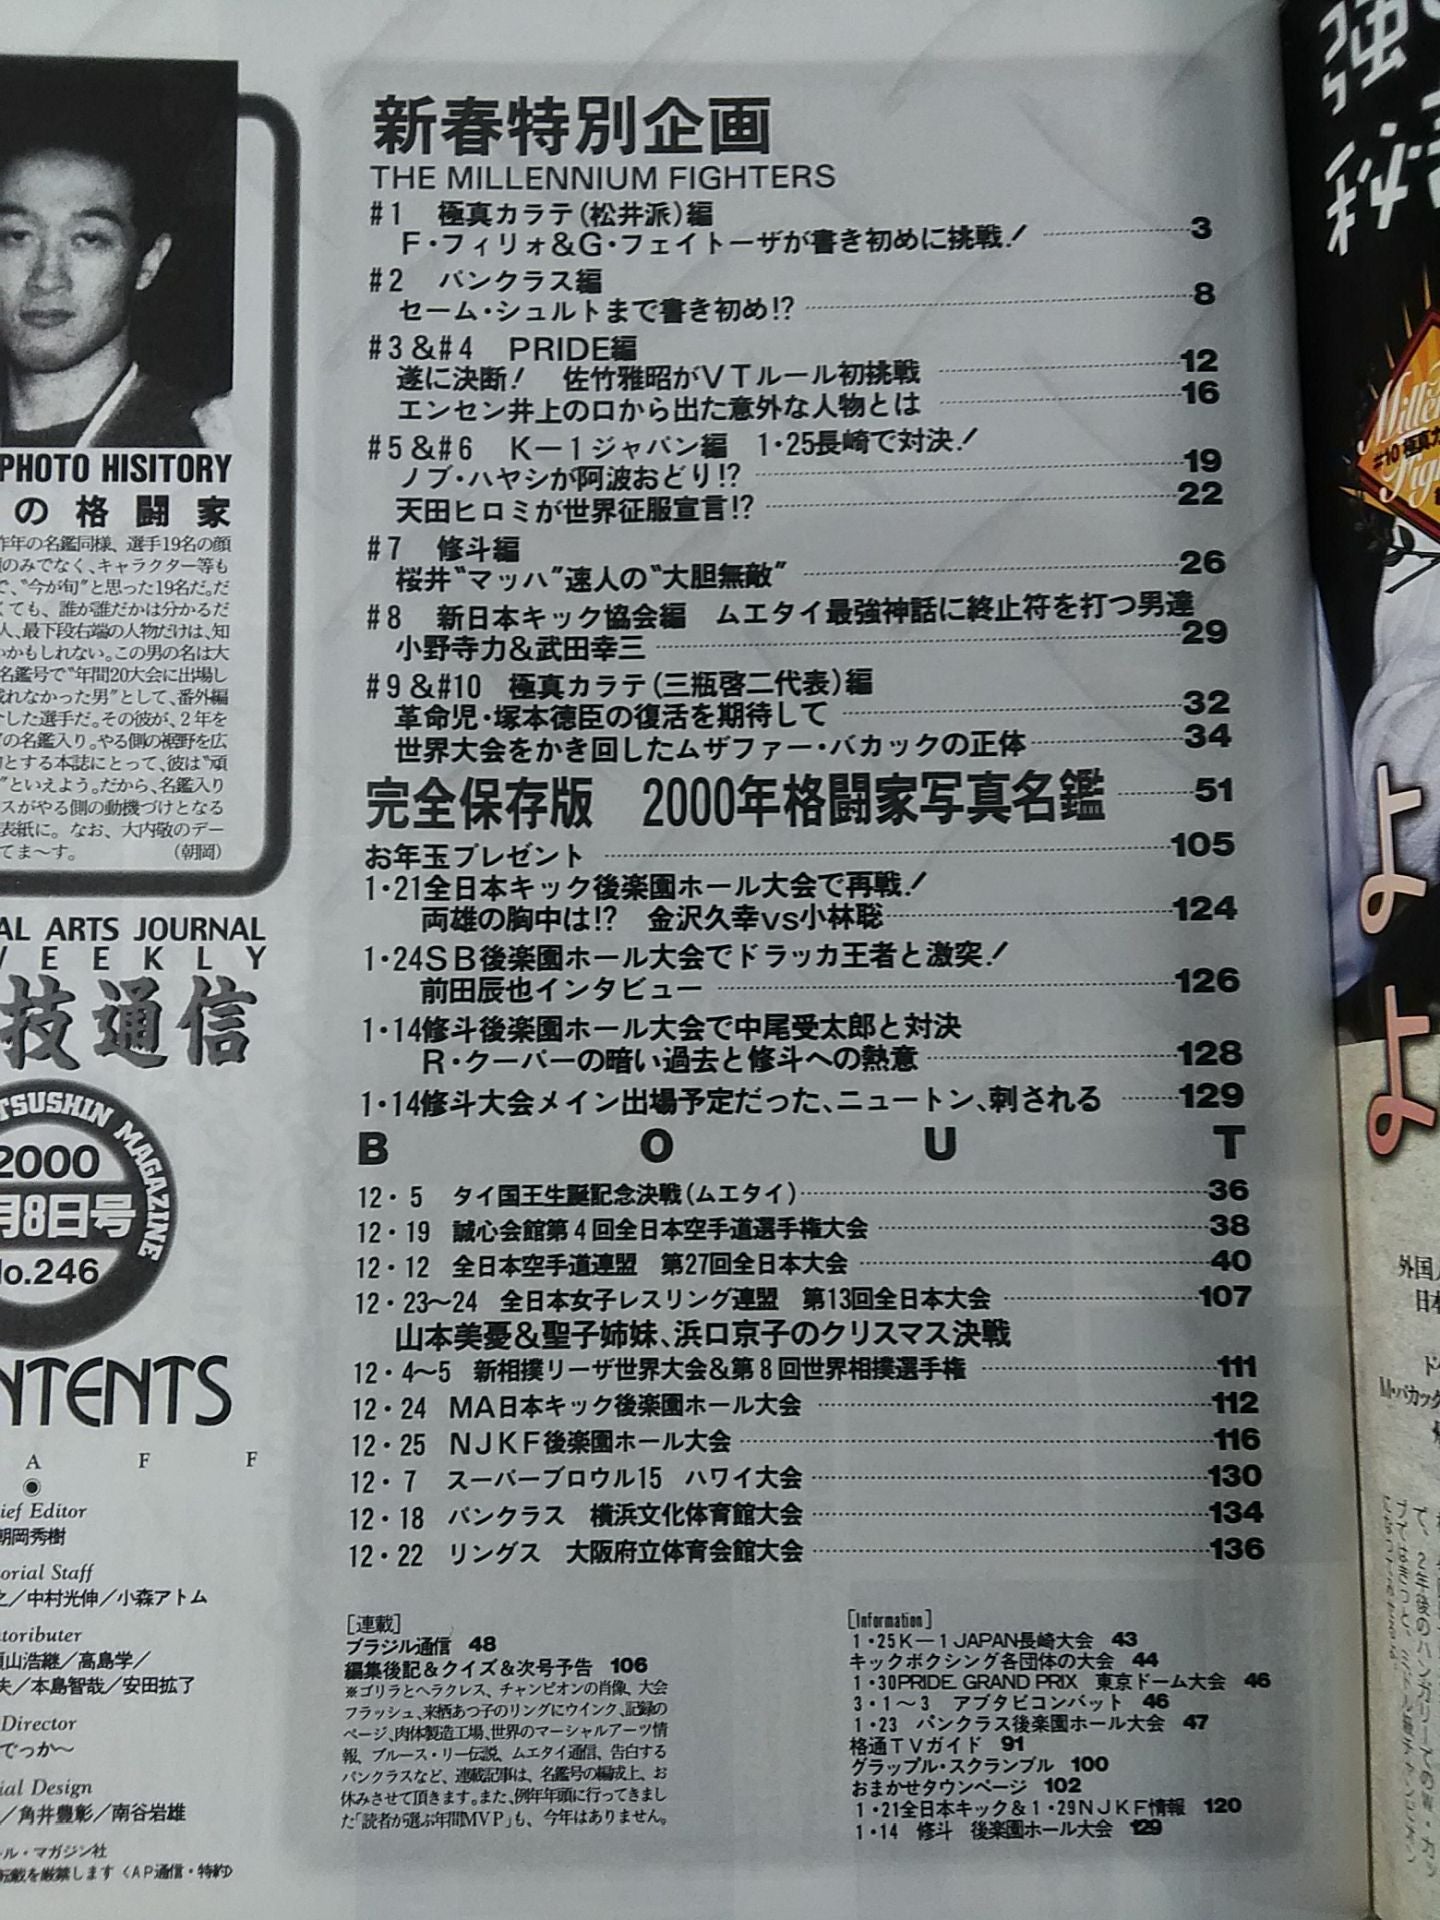 新春特別企画
THE MILLENNIUM FIGHTERS
#1 極真カラテ(松井派)編
F・フィリォ&G・フェイトーザが書き初めに挑戦! 3
#2 パンクラス編
セーム・シュルトまで書き初め!? 8
#3&#4 PRIDE編
遂に決断! 佐竹雅昭がVTルール初挑戦 12
エンセン井上の口から出た意外な人物とは 16
#5&#6 K-1ジャパン編 1・25長崎で対決!
ノブ・ハヤシが阿波おどり!? 19
天田ヒロミが世界征服宣言!? 22
#7 修斗編
桜井“マッハ”速人の“大胆無敵” 26
#8 新日本キック協会編 ムエタイ最強神話に終止符を打つ男達
小野寺力&武田幸三 29
#9&#10 極真カラテ(三瓶啓二代表)編
革命児・塚本徳臣の復活を期待して 32
世界大会をかき回したムザファー・バカックの正体 34
完全保存版 2000年格闘家写真名鑑 51
お年玉プレゼント 105
1・21全日本キック後楽園ホール大会で再戦!
両雄の胸中は!? 金沢久幸vs小林聡 124
1・24SB後楽園ホール大会でドラッカ王者と激突!
前田辰也インタビュー 126
1・14修斗後楽園ホール大会で中尾受太郎と対決
R・クーパーの暗い過去と修斗への熱意 128
1・14修斗大会メイン出場予定だった、ニュートン、刺される 129
B O U T
12・5 タイ国王生誕記念決戦(ムエタイ) 36
12・19 誠心会館第4回全日本空手道選手権大会 38
12・12 全日本空手道連盟 第27回全日本大会 40
12・23〜24 全日本女子レスリング連盟 第13回全日本大会 107
山本美憂&聖子姉妹、浜口京子のクリスマス決戦
12・4〜5 新相撲リーザ世界大会&第8回世界相撲選手権 111
12・24 MA日本キック後楽園ホール大会 112
12・25 NJKF後楽園ホール大会 116
12・7 スーパーブロウル15 ハワイ大会 130
12・18 パンクラス 横浜文化体育館大会 134
12・22 リングス 大阪府立体育会館大会 136
[連載]
ブラジル通信 48
編集後記&クイズ&次号予告 106
※ゴリラとヘラクレス、チャンピオンの肖像、大会
フラッシュ、来栖あつ子のリングにウインク、記録の
ページ、肉体製造工場、世界のマーシャルアーツ情
報、ブルース・リー伝説、ムエタイ通信、告白する
パンクラスなど、連載記事は、名鑑号の編成上、お
休みさせて頂きます。また、例年年頭に行ってきまし
た「読者が選ぶ年間MVP」も、今年はありません。
[Information]
1・25K-1 JAPAN長崎大会 43
キックボクシング各団体の大会 44
1・30PRIDE GRAND PRIX 東京ドーム大会 46
3・1〜3 アブタビコンバット 46
1・23 パンクラス後楽園ホール大会 47
格通TVガイド 91
グラップル・スクランブル 100
おまかせタウンページ 102
1・21全日本キック&1・29NJKF情報 120
1・14 修斗 後楽園ホール大会 129
PHOTO HISITORY
の格闘家
昨年の名鑑同様、選手19名の顔
のみでなく、キャラクター等も
で、“今が旬”と思った19名だ。だ
くても、誰が誰だかは分かるだ
人、最下段右端の人物だけは、知
いかもしれない。この男の名は大
名鑑号で“年間20大会に出場し
れなかった男”として、番外編
した選手だ。その彼が、2年を
の名鑑入り。やる側の裾野を広
とする本誌にとって、彼は“頑
”といえよう。だから、名鑑入り
スがやる側の動機づけとなる
表紙に。なお、大内敬のデー
てま〜す。 (朝岡)
AL ARTS JOURNAL
WEEKLY
技通信
TSUSHIN MAGAZINE
2000
月8日号
No.246
NTENTS
A F F
ief Editor
朝岡秀樹
torial Staff
之/中村光伸/小森アトム
ntoributer
須山浩継/高島学/
夫/本島智哉/安田拡了
Director
でっか〜
ial Design
/角井豊彰/南谷岩雄
ル・マガジン社
転載を厳禁します〈AP通信・特約〉
強
秘
#10 極真カ
よ
よ
外国人
日本
M・バカック